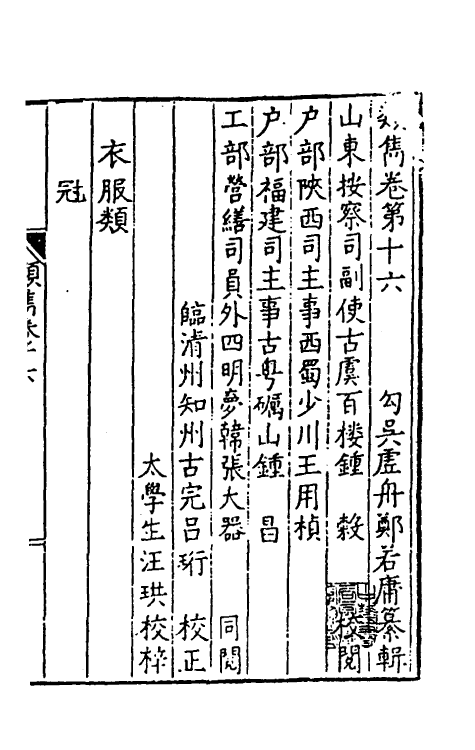 類雋卷第十六　勾吳虛舟鄭若庸纂輯
山東按察司副使古虞百樓鍾　穀　校閱
户部陝西司主事西蜀少川王用楨
户部福建司主事古粤礪山鍾　昌
工部營繕司員外四明夢韓張大器　同閱
臨清州知州古完呂珩　校正
太學生汪珙校梓
衣服類
冠
類雋卷十六